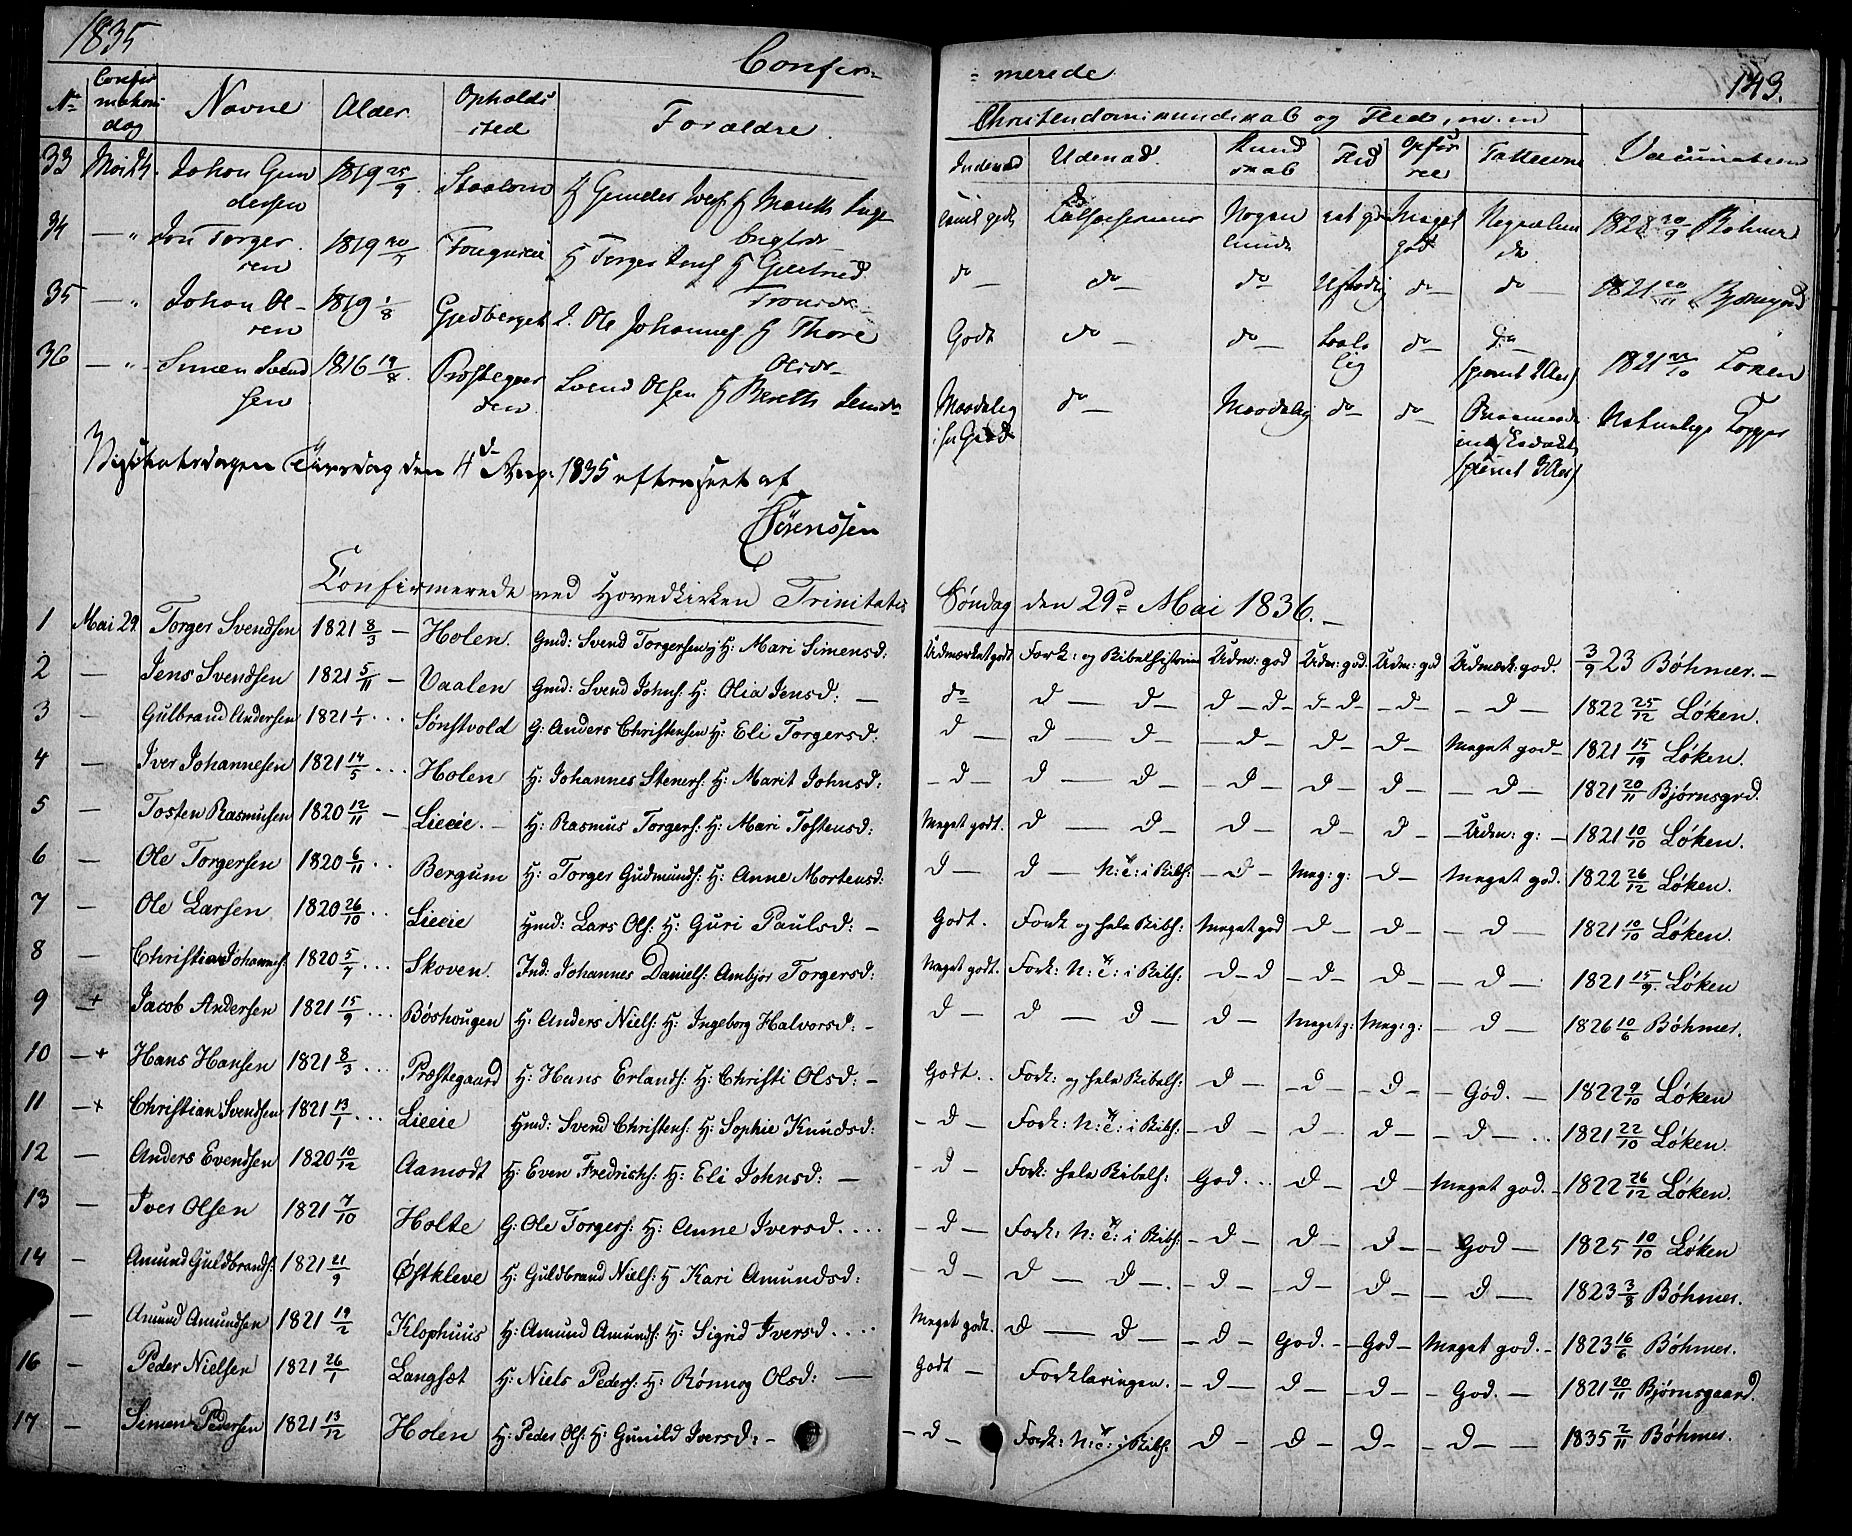 1835 Confir=
= merede 143.
No Confirmations dag Navne Alder Opholds sted Forældre
Christendomskundskab og Flid, m. m
Indenad Udenad. Kundskab Flid Opførsel Fatteevne Vaccination
33 Mai 24. Johan Gundersen 1819 25/9. H Gunder H Mareth
Meget god 1828 20/9 Bøhmer
34 — " Jon Torgersen 1819 H Torger H Gjertrud
do do do do do 1821 20/11 Bjørnsgrd
35 — " Johan Olsen 1819 1/8 Gjedberget Ole Johannes H Thore Olsdr
Godt do do do do 1821 22/10 Løken
36 — " Simen Svendsen 1816 19/8 Præstegaarden Svend Olsen H Bereth
Maadelig do Maadelig do do Naturlige Kopper
Visitatsdagen Tirsdag den 4de Aug. 1835 efterseet af
Sørenssen
Confirmerede ved Hovedkirken Trinitatis Søndag den 29de Mai 1836.
1 Mai 29 Torger Svendsen 1821 8/3 — Holen. Gmd: Svend Torgersen H: Mari Simensd: Udmærket godt Fork: og Bibelhistorien Udm: god Udm: god. Udm: god Udmærk: god. 3/9 23 Bøhmer.
2 — Jens Svendsen 1821 5/11 — Vaalen Gmd: Svend Johns: H: Olia Jensd: — do D — D — D — D — D — D — D — D — 1822 25/12 Løken.
3 — Gulbrand Andersen 1821 1/1 ... Sønstvold G: Anders Christensen H: Eli Torgersd: D — D — D — D — D — D — Meget god 1821 15/19 Løken.
4 — Iver Johannesen 1821 14/5 ... Holen H: Johannes Steners: H: Marit Johnsd: — D — D — D — D — D — D — D — 1821 20/11 Bjørnsgrd.
5 — Tosten Rasmusen 1820 12/11 — Lieeie. — H: Rasmus Torgers: H: Mari Tostensd: Meget godt. D — D — D — D — D — Udm: g: 1821 10/10 Løken.
6 — Ole Torgersen 1820 6/11 .. Bergum H: Torger Gudmunds: H: Anne Mortensd: D — D — N: T: i Bibh: D — Meg: g: D — Meget god. 1822 26/12 Løken.
7 — Ole Larsen 1820 26/10 .. Lieeie Hmd: Lars Ols: H: Guri Paulsd: — Godt. Fork og hele Bibh: Meget god D — D — D — 1821 10/10 Løken.
8 — Christian Johannes: 1820 5/7 ... Skoven. Ind: Johannes Daniels: Ambjør Torgersd: Meget godt. Fork: N: T: i Bibh: D — D — D — D — D — 1821 15/9 Løken
9 — + Jacob Andersen 1821 15/9 ... Bøshougen H: Anders Niels: H: Ingeborg Halvorsd: — D — D — D — D — Meget g: Meg: g: — D — 1826 10/6 Bøhmer.
10 — + Hans Hansen 1821 8/3 ... Præstegaard H: Hans Erlands: H: Christi Olsd: — Godt.. Fork: og hele Bibelh: D — D — D — God. — 1822 9/10 Løken
11 — + Christian Svendsen 1821 13/1 ... Lieeie Hmd: Svend Christens: H: Sophie Knudsd: — D — Fork: N: T: i Bibh: D — D — D — D — .. 1821 22/10 Løken.
12 — Anders Evendsen 1820 10/12 Aamodt H: Even Fredriks: H: Eli Johnsd: — — D — Fork: hele Bibelh: God... D — D — Meget god. — 1822 26/12 Løken.
13 — Iver Olsen 1821 7/10 Holte G: Ole Torgers: H: Anne Iversd.... — D — Fork: N: T: i Bibh: D — D — D — God — 1825 10/10 Løken
14 — Amund Guldbrands: 1821 21/9 Østkleve H: Guldbrand Niels: H Kari Amundsd: — D — D — D — D — D — D — D — 1823 3/8 Bøhmer.
— Amund Amundsen 1821 19/2 Klophuus H: Amund Amunds: H: Sigrid Iversd.... Meget godt. D — D — D — God. — God — Meget god. — 1823 16/6 Bøhmer.
16 — Peder Nielsen 1821 26/1 Langsæt H: Niels Peders: H: Rønnog Olsd: — Godt — Forklaringen. — D — D — D — God. — 1821 20/11 Bjørnsgaard.
17 — Simen Pedersen 1821 13/12 Holen H: Peder Ols: H: Gunild Iversd: — — D — Fork: N: T: i Bibh: D — D — D — D — 1835 2/11 Bøhmer.